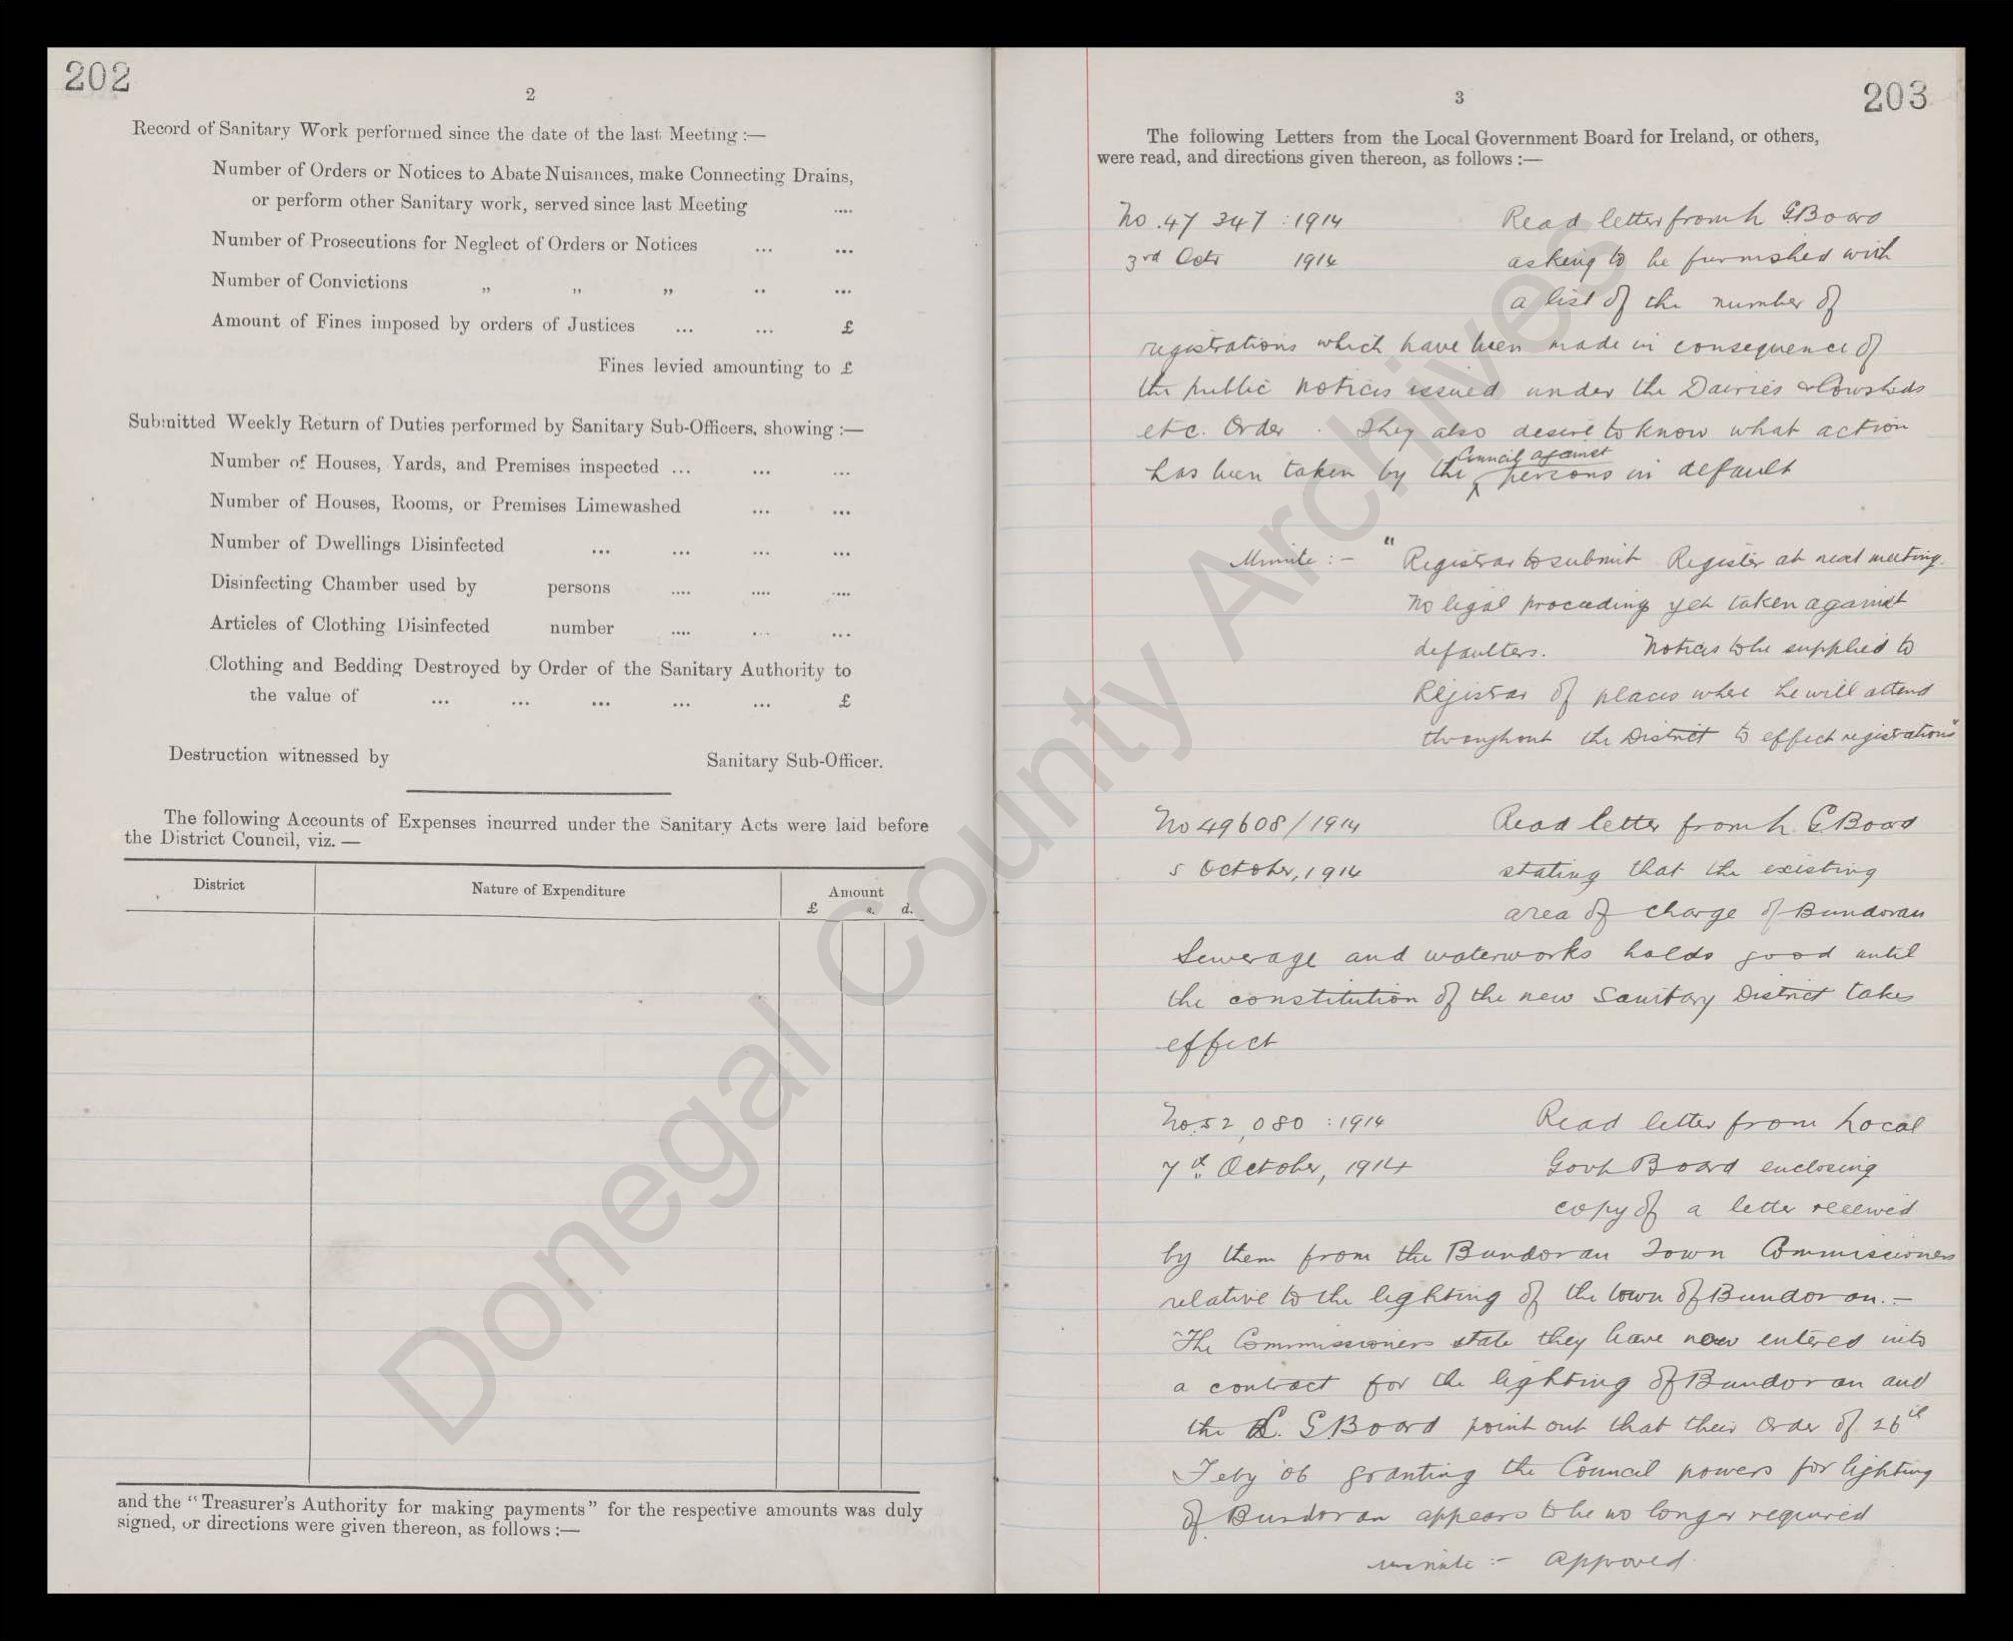 202
2
Record of Sanitary Work performed since the date of the last Meeting :—
Number of Orders or Notices to Abate Nuisances, make Connecting Drains,
or perform other Sanitary work, served since last Meeting ....
Number of Prosecutions for Neglect of Orders or Notices ... ...
Number of Convictions „ „ „ .. ...
Amount of Fines imposed by orders of Justices ... ... £
Fines levied amounting to £
Submitted Weekly Return of Duties performed by Sanitary Sub-Officers, showing :—
Number of Houses, Yards, and Premises inspected ... ... ...
Number of Houses, Rooms, or Premises Limewashed ... ...
Number of Dwellings Disinfected ... ... ... ...
Disinfecting Chamber used by persons .... .... ....
Articles of Clothing Disinfected number .... ... ...
Clothing and Bedding Destroyed by Order of the Sanitary Authority to
the value of ... ... ... ... ... £
Destruction witnessed by Sanitary Sub-Officer.
The following Accounts of Expenses incurred under the Sanitary Acts were laid before
the District Council, viz. —
District Nature of Expenditure Amount
£ s. d.
and the "Treasurer's Authority for making payments" for the respective amounts was duly
signed, or directions were given thereon, as follows :—
203
3
The following Letters from the Local Government Board for Ireland, or others,
were read, and directions given thereon, as follows :—
No. 47 347 : 1914 Read letter from L G Board
3rd Octr 1914 asking to be furnished with
a list of the number of
registrations which have been made in consequence of
the public notices issued under the Dairies & Cowsheds
etc. Order. They also desire to know what action
Council against
has been taken by the ^ persons in default
Minute :- "Registrar to submit Register at next meeting.
No legal proceedings yet taken against
defaulters. Notices to be supplied to
Registrar of places where he will attend
throughout the District to effect registrations"
No 49608/1914 Read letter from L. G Board
5 October, 1914 stating that the existing
area of charge of Bundoran
Sewerage and waterworks holds good until
the constitution of the new Sanitary District takes
effect
No. 52,080 : 1914 Read letter from Local
7th October, 1914 Govt Board enclosing
copy of a letter received
by them from the Bundoran Town Commissioners
relative to the lighting of the town of Bundoran. -
The Commissioners state they have now entered into
a contract for the lighting of Bundoran and
the L. G. Board point out that their Order of 26th
Feby '06 granting the Council powers for lighting
of Bundoran appears to be no longer required
minute :- Approved.
Donegal County Archives